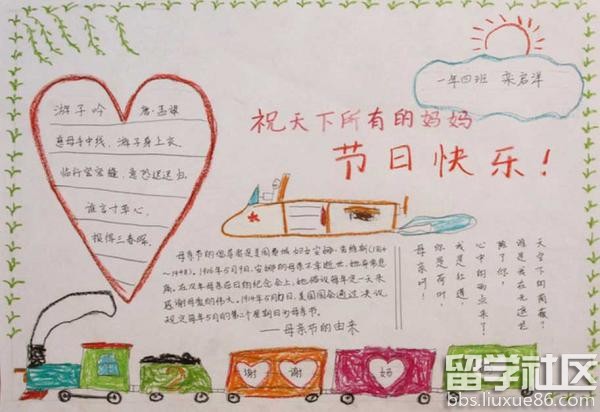 一年四班 栾启洋
祝天下所有的妈妈
节日快乐!
游子吟 唐·孟郊
慈母手中线,游子身上衣.
临行密密缝,意恐迟迟归.
谁言寸草心,
报得三春晖.
母亲节的倡导者是美国费城妇女安娜·
~1948). 1906年5月9日,安娜的母亲不幸逝世,她非常悲
痛。在次年母亲忌日的纪念会上,她倡议每年定一天来
感谢母爱的伟大。1914年5月 日,美国国会通过决议
规定每年5月的第二个星期日为母亲节.
——母亲节的由来
母亲啊!
你是荷叶,
我是红莲,
心中的雨点来了,
除了你,
谁是我在无遮拦
天空下的荫蔽?
谢 谢 妈
留学社区
bbs.liuxue86.com